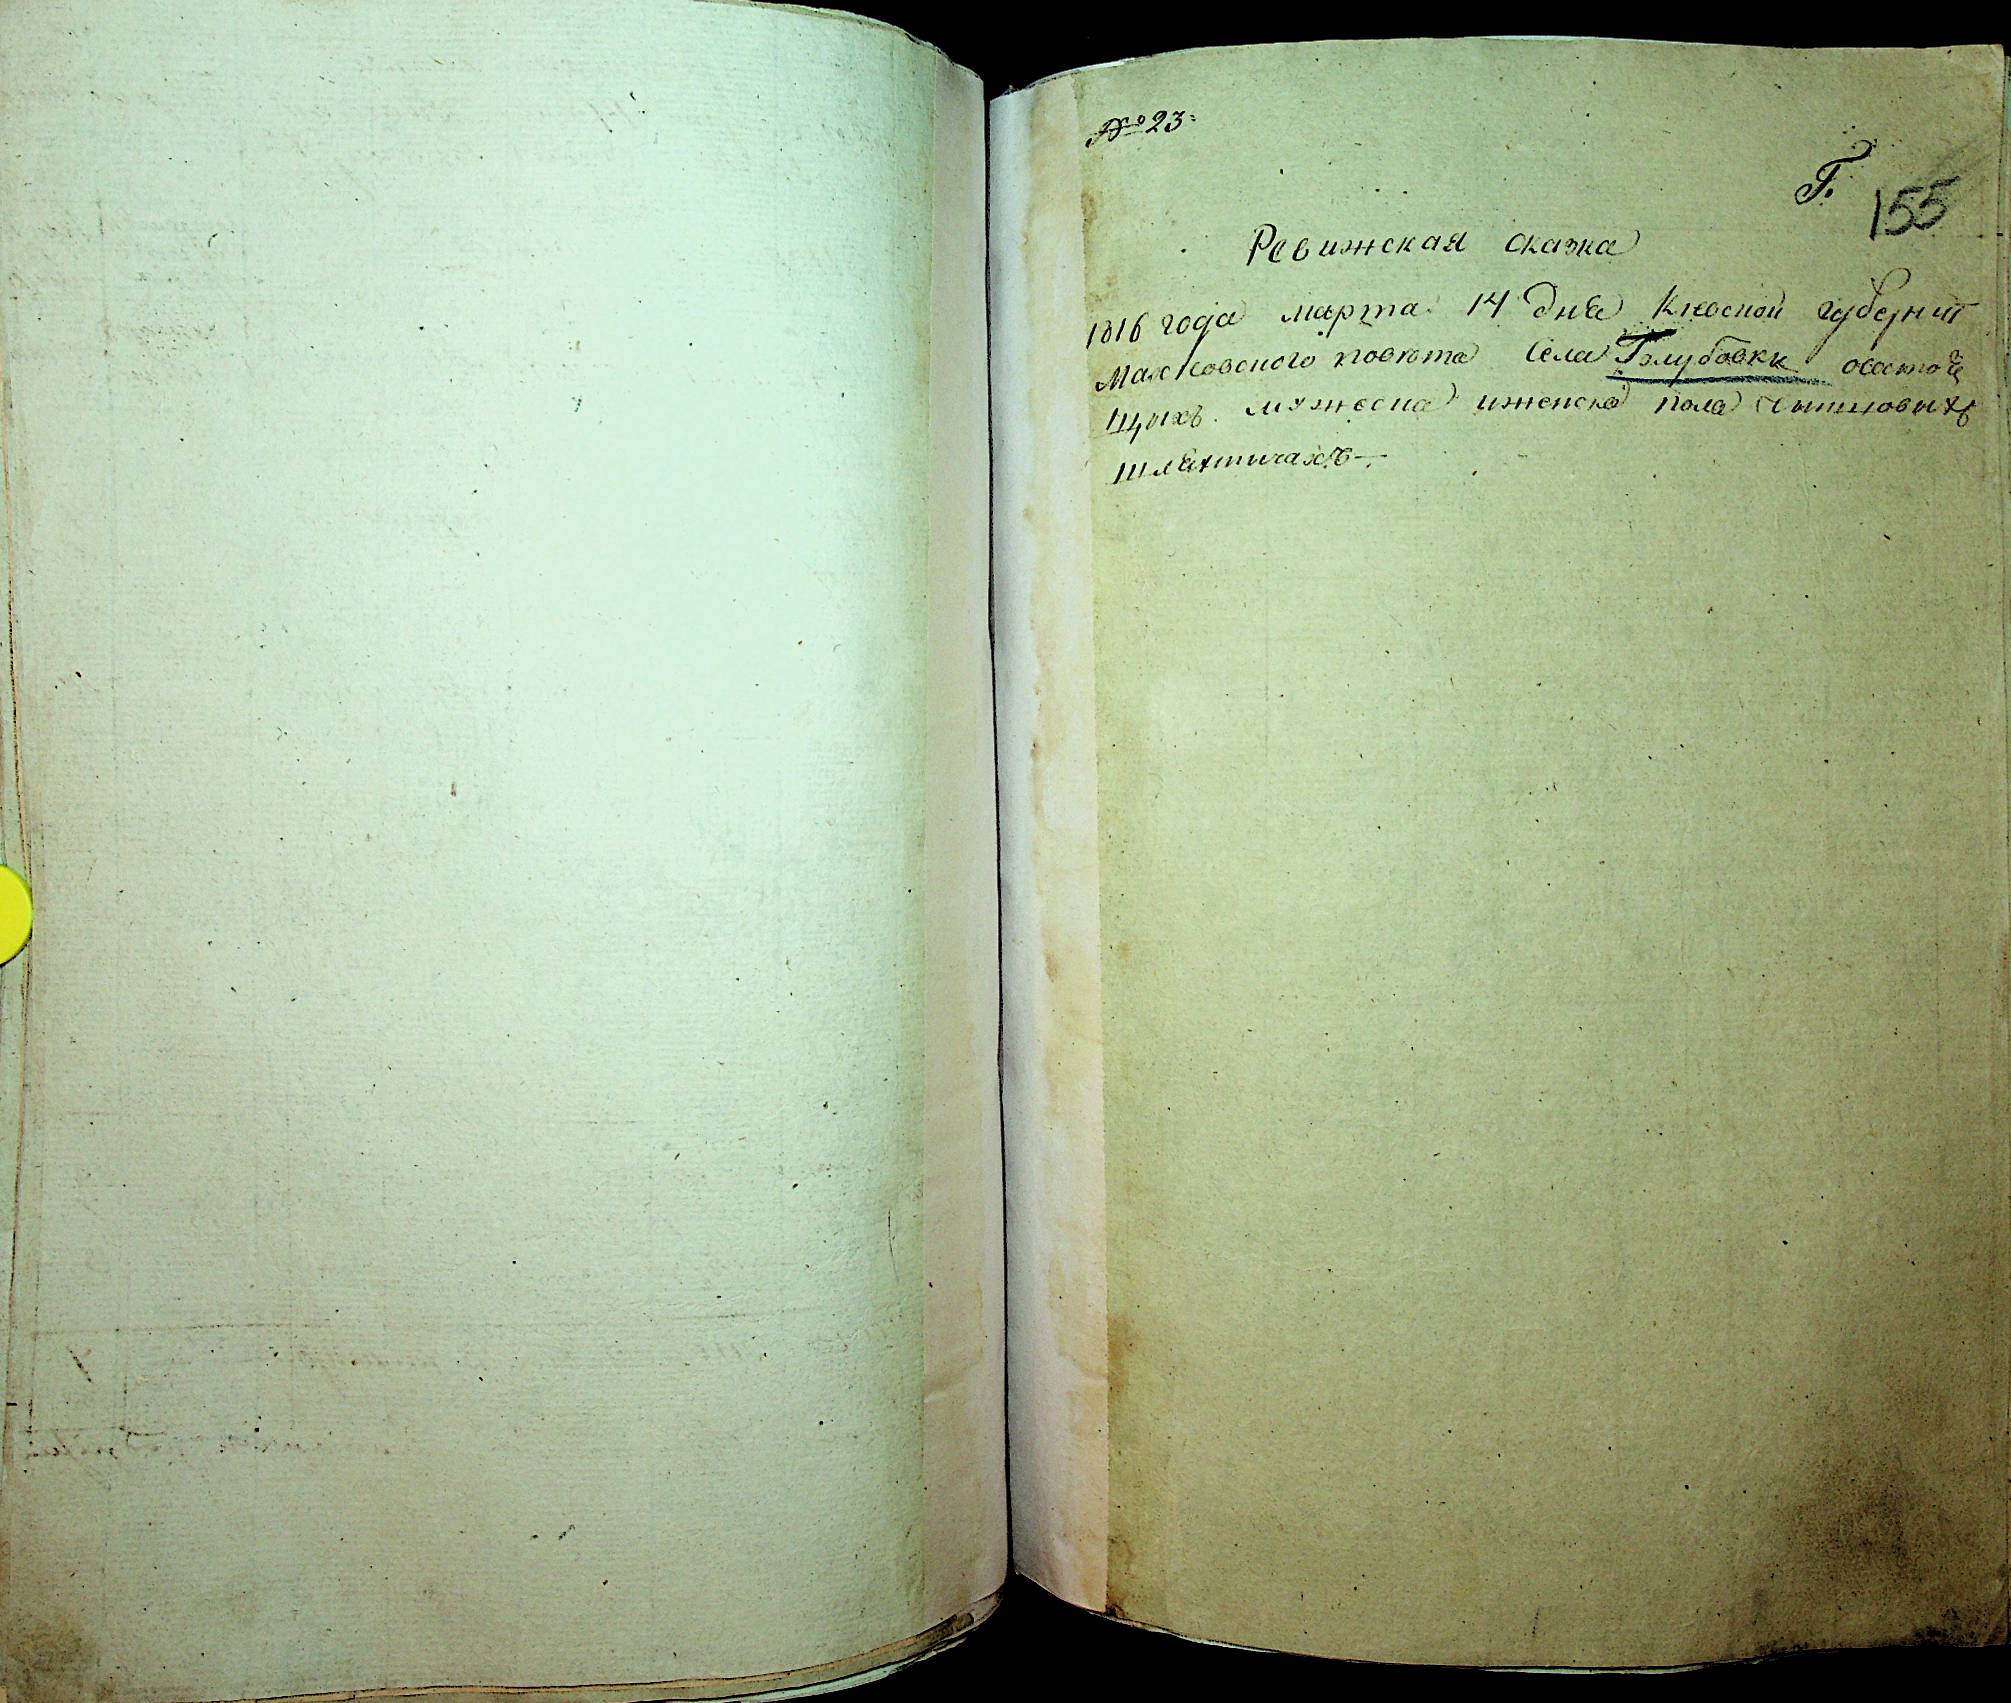 № 23
Г.
155
Ревижская сказка
1816 года марта 14 дня Киевской губернии
Махновского повета села Голубовки остои
щихъ мужеска иженска пола чиншовыхъ
шляхтичахъ